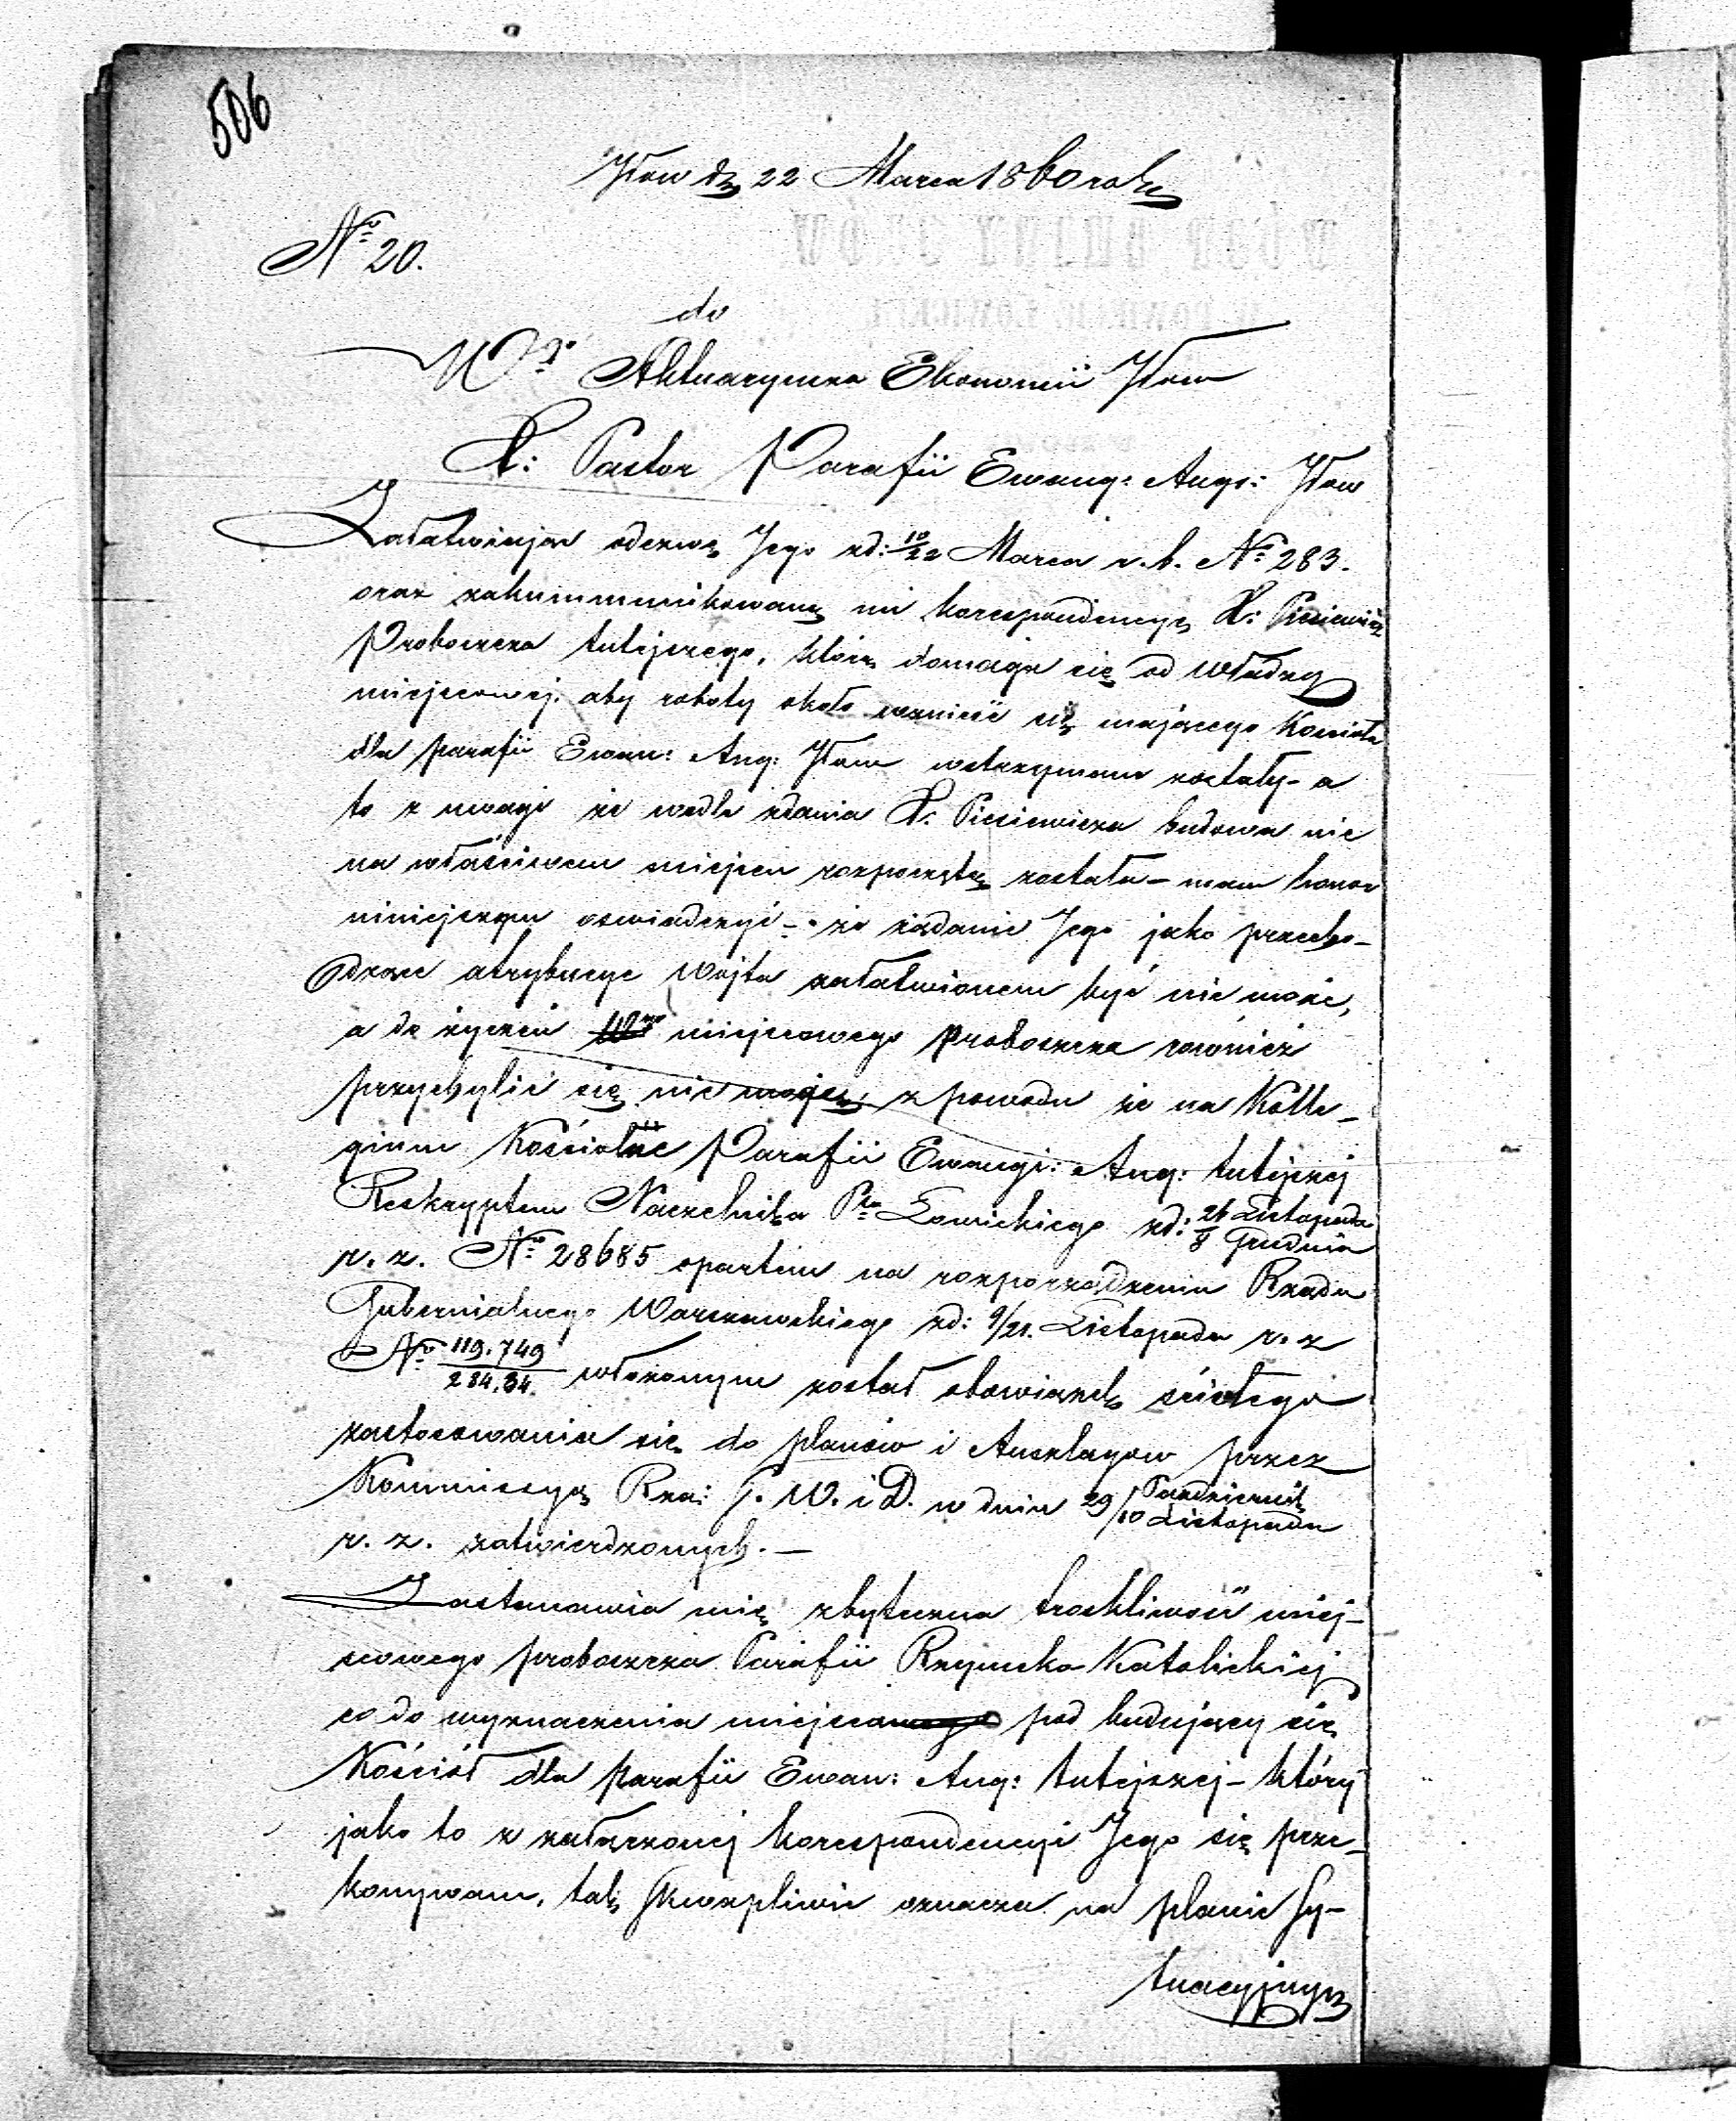 506
Iłow dn 22 Marca 1860 roku
No 20.
do
Wgo Aktuaryusza Ekonomii Iłow
X: Pastor Parafii Ewang: Augs: Iłow
Załatwiając odezwę Jego zd: 10/22 Marca r. b. No 283.
oraz zakommunikowaną mi korespondencyę X:
Proboszcza tutejszego, którą domaga się od Władzy
miejscowej, aby roboty około wznieść się mającego Kościoła
dla parafii Ewan: Aug: Iłow wstrzymane zostały - a
to z uwagi że wedle zdania X. Piesiewicza budowa nie
na właściwem miejscu rozpoczętą została - mam honor
niniejszym oswiadczyć - że żądanie Jego jako przecho-
dzące atrybucye Wójta załatwionem być nie może,
a do życzeń miejscowego Proboszcza rownież
przychylić się nie mogę, z powodu że na Kolle-
gium Kościelne Parafii Ewangi: Aug: tutejszej
Reskryptem Naczelnika Ptu Łowickiego zd: 26 Listopada / 8 Grudnia
r. z. No 28685 opartem na rozporządzeniu Rządu
Gubernialnego Warszawskiego zd: 9/21. Listopada r. z
No 119.749 / 284,34. włożonym został obowiązek ścisłego
zastosowania się do planów i Anszlagow przez
Kommissyą Rzą: S. W. i D. w dniu 29 Pazdziernik / 10 Listopada
r. z. zatwierdzonych. —
Zastanawia mię zbyteczna troskliwość miej-
scowego proboszcza Parafii Rzymsko Katolickiej
co do wyznaczenia miejsca pod budujący się
Kościół dla parafii Ewan: Aug: tutejszej - który
jako to z załączonej korespondencyi Jego się prze-
konywam, tak skwapliwie oznacza na planie Sy-
tuacyjnym